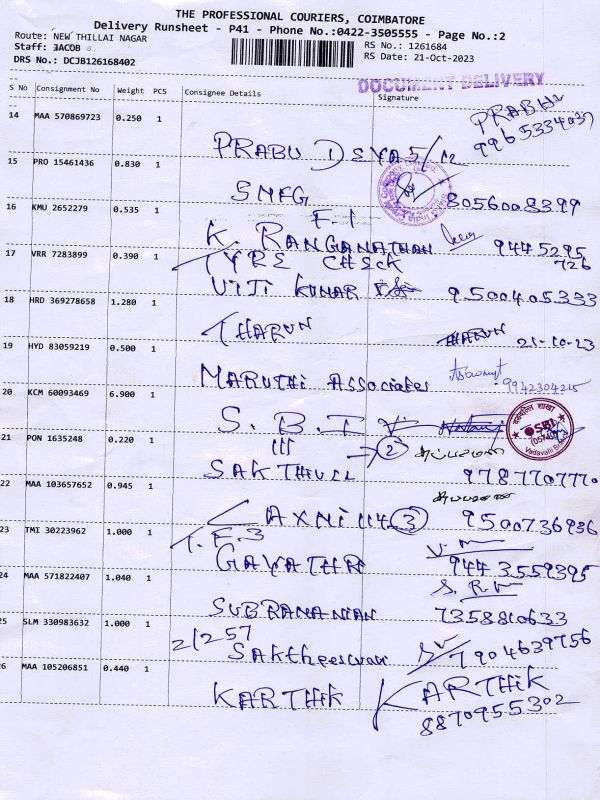 THE PROFESSIONAL COURIERS, COIMBATORE
Delivery Runsheet - P41 - Phone No.:0422-3505555 - Page No.:2
Route: NEW THILLAI NAGAR
RS No.: 1261684
Staff: JACOB
RS Date: 21-Oct-2023
DRS No.: DCJB126168402
DOCUMENT DELIVERY
S No Consignment No Weight PCS Consignee Details Signature
14 MAA 570869723 0.250 1
PRABU
9965334037
15 PRO 15461436 0.830 1
SMFG 8056008399
16 KMU 2652279 0.535 1
K. RANGANATHAN 9445295
726
17 VRR 7283899 0.390 1
TYRE CHECK
VIJI KUMAR 9500405333
18 HRD 369278658 1.280 1
THARUN THARUN 21-10-23
19 HYD 83059219 0.500 1
MARUTHI Associates 9942304215
20 KCM 60093469 6.900 1
S.B.I
SBI
21 PON 1635248 0.220 1
2
SAKTHIVEL 9787707770
22 MAA 103657652 0.945 1
3 9500736936
23 TMI 30223962 1.000 1
GAYATHRI 9443559395
24 MAA 571822407 1.040 1
SUBRAMANIAN 7358810633
25 SLM 330983632 1.000 1
2/257
Saktheeswari 7904639756
26 MAA 105206851 0.440 1
KARTHIK KARTHIK
8870955302